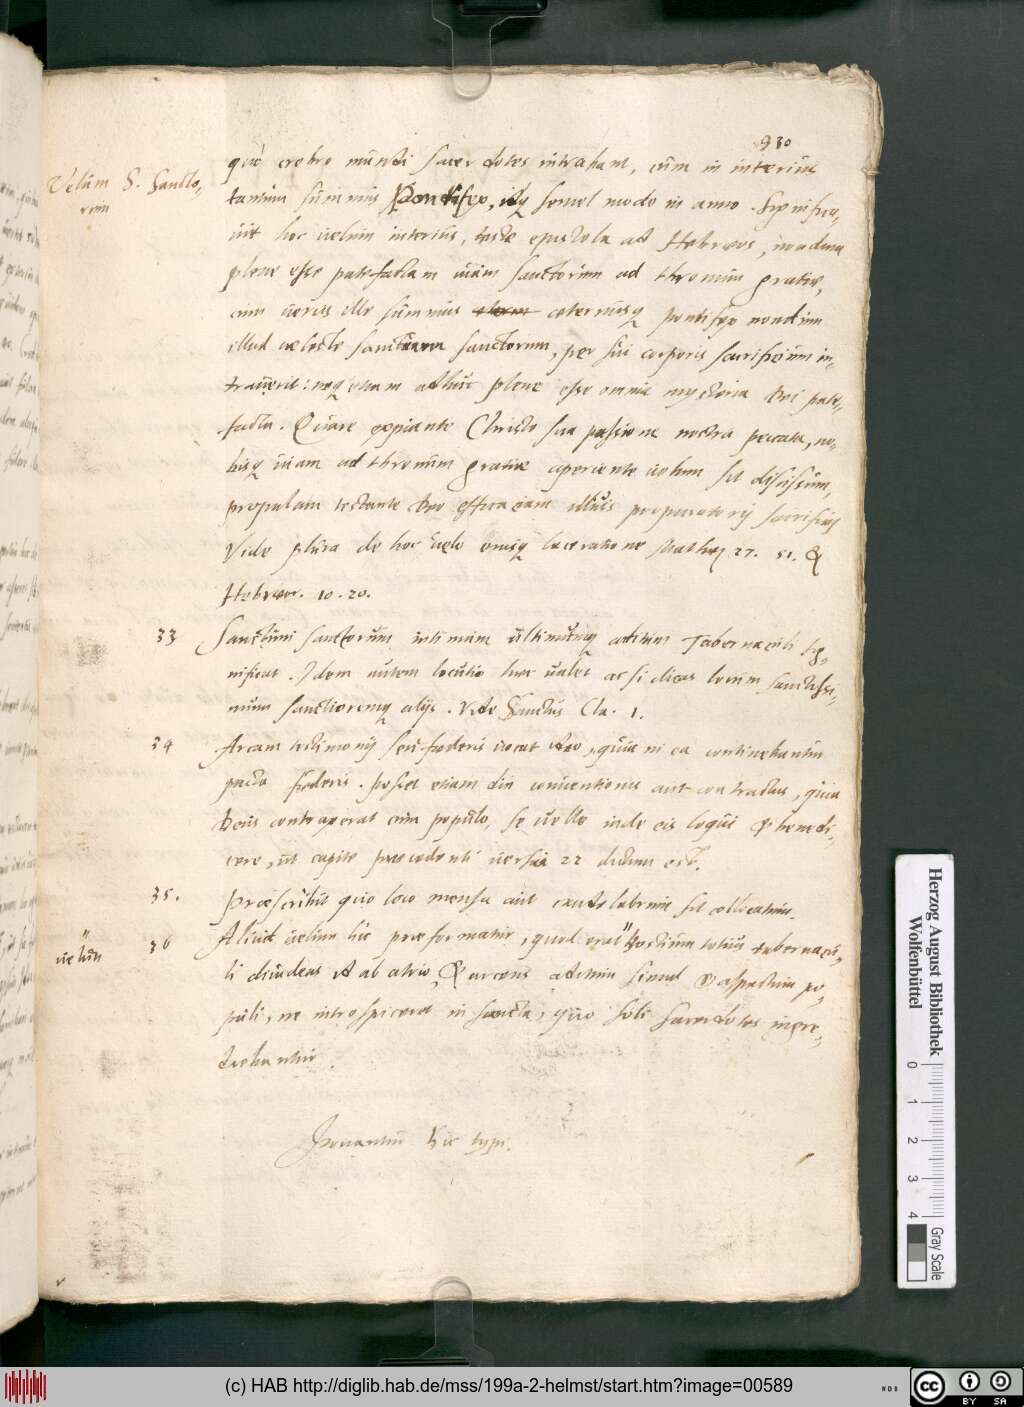 930
Velum S. Sancto-
rum
quò crebro mundi sacerdotes intrabant, cùm in interius
tantum summus Pontifex, idq; semel modo in anno. Significa-
uit hoc uelum interius, teste epistola ad Hebræos, nondum
plene esse patefactam uiam sanctorum ad thronum gratiæ,
cum uerus ille summus æternusq; pontifex nondum
illud cæleste sanctum sanctorum, per sui corporis sacrificium in-
trauerit: neq; etiam adhuc plene esse omnia mysteria Dei pate-
facta. Quare expiante Christo sua passione nostra peccata, no-
bisq; uiam ad thronum gratiæ aperiente uelum sit discissum,
propalam testante Deo efficaciam illius propitiatorij sacrificij
Vide plura de hoc uelo eiusq; laceratione Matthæj 27. 51. &
Hebræor. 10. 20.
33 Sanctum sanctorum intimum ultimumq; aditum Tabernaculi sig-
nificat. Idem autem locutio hæc ualet ac si dicas locum sanctissi-
mum sanctioremq; alijs. Vide Sanctus Cla. 1.
34 Arcam testimonij seu fœderis uocat ideo, quia in ea continebantur
pacta fœderis. posset etiam dici conuentionis aut contractus, quia
Deus contraxerat cum populo, se uelle inde eis loqui & benedi-
cere, ut capite præcedenti uersu 22 dictum est.
35. Præscribit quo loco mensa aut candelabrum sit collocandum.
uelum
36 Aliud uelum hic præformatur, quod erat ostium totius tabernacu-
li diuidens id ab atrio, & arcens aditum simul & aspectum po-
puli, ne introspiceret in sancta, quo soli sacerdotes ingre-
diebantur.
Ponantur hic typi.
Herzog August Bibliothek
Wolfenbüttel
0 1 2 3 4
Gray Scale
(c) HAB http://diglib.hab.de/mss/199a-2-helmst/start.htm?image=00589
cc BY SA